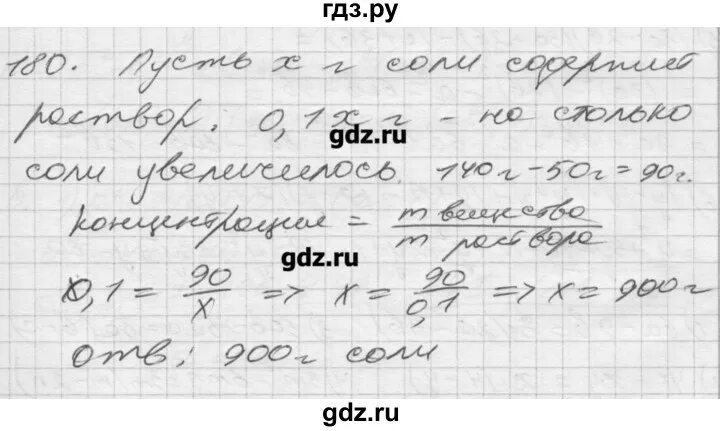 гдз.ру
180. Пусть x г соли содержит
раствор. 0,1x г - на столько
gdz.ru
соли увеличилось. 140 г - 50 г = 90 г.
концентрация = m вещества / m раствора
gdz.ru
0,1 = 90/x => x = 90/0,1 => x = 900 г
Отв: 900 г соли
gdz.ru